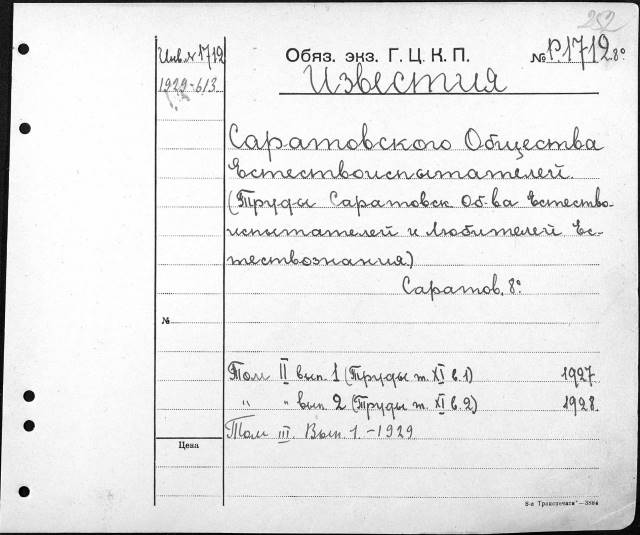 252
Инв. № 1712
Обяз. экз. Г. Ц. К. П.
№ Р.1712 8º
1929-613
Известия
Саратовского Общества
Естествоиспытателей.
(Труды Саратовск Об-ва Естество-
испытателей и Любителей Ес-
тествознания)
Саратов. 8º
№
Том II вып. 1 (Труды т. XI в.1) 1927
" " вып. 2 (Труды т. XI в.2) 1928
Том III. Вып. 1.-1929
Цена
8-я Транспечати—3884